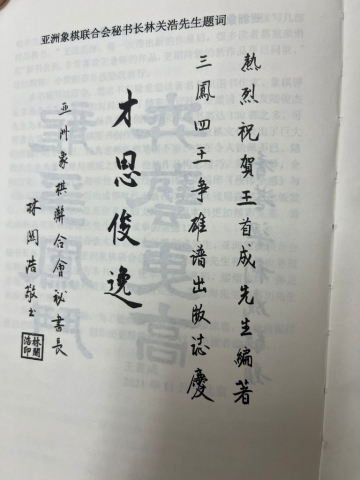 亚洲象棋联合会秘书长林关浩先生题词
熱烈祝賀王首成先生編著
三鳳四王争雄谱出版誌慶
才思俊逸
亚洲象棋聯合會秘書長
林関浩敬书
林関浩印